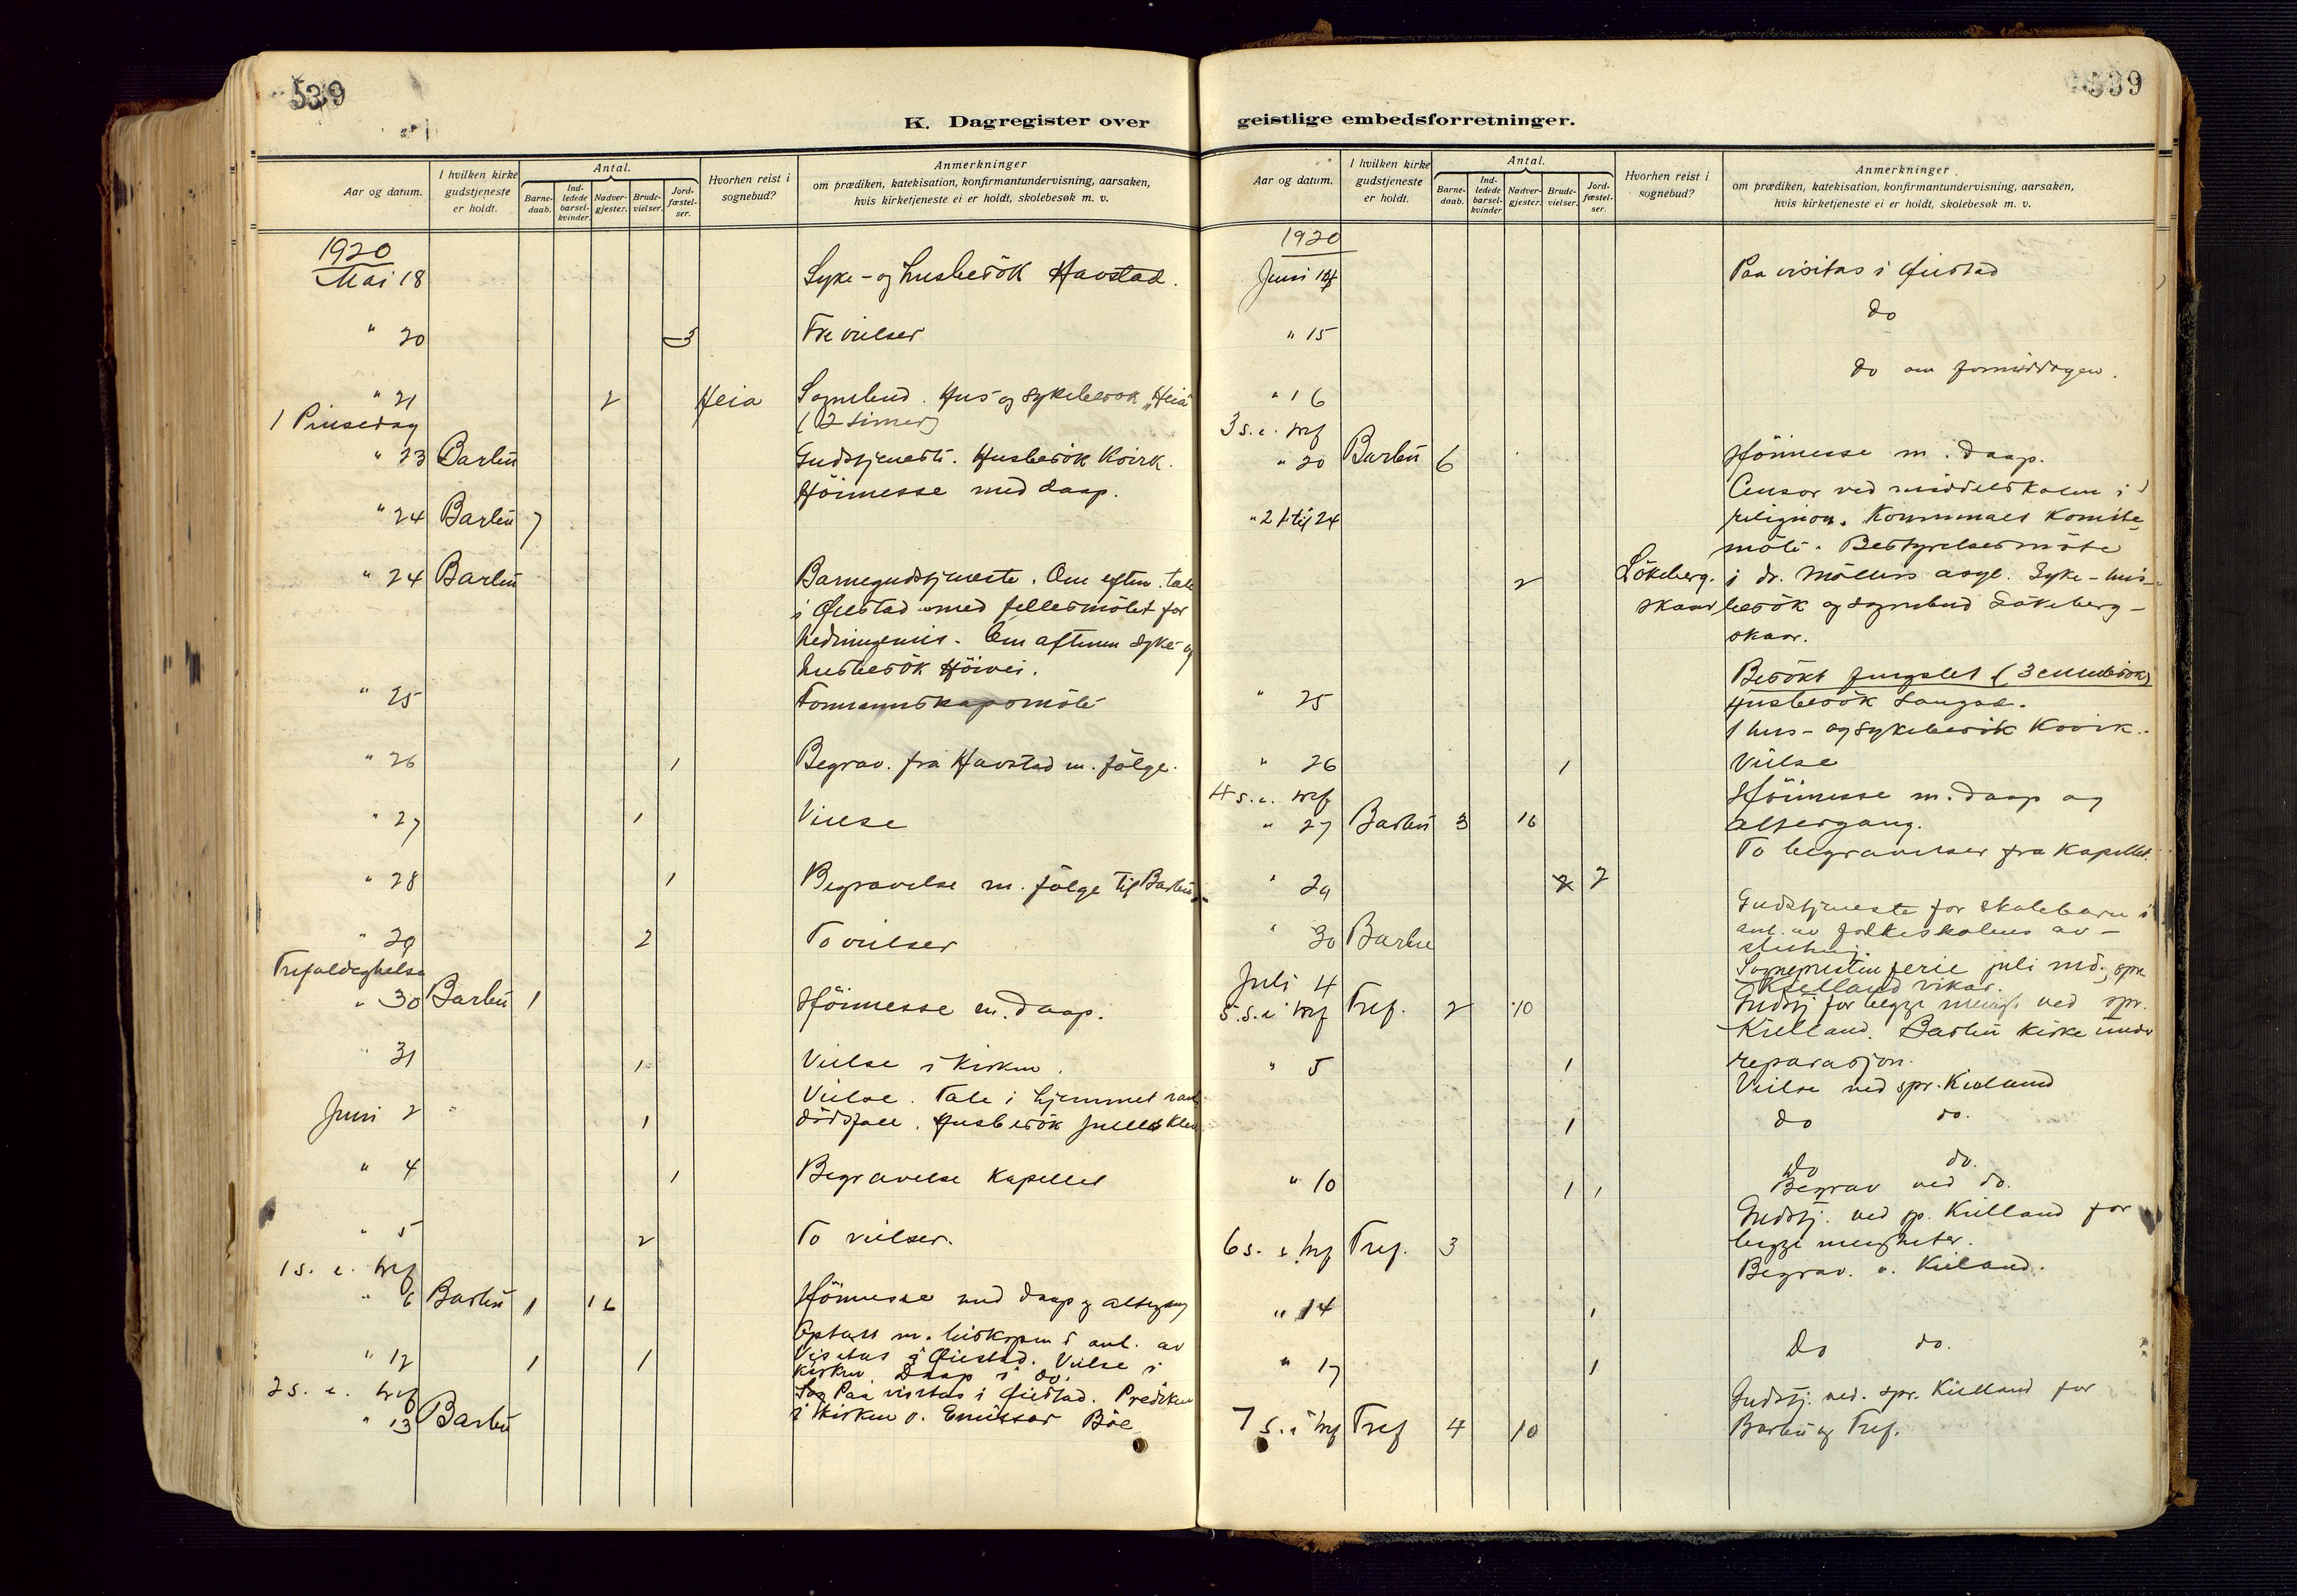 539
K. Dagregister over
Aar og datum.
I hvilken kirke gudstjeneste er holdt.
Antal.
Barne-daab.
Ind-ledede barsel-kvinder.
Nadver-gjester.
Brude-vielser.
Jord-fæstel-ser.
Hvorhen reist i sognebud?
Anmerkninger
om prædiken, katekisation, konfirmantundervisning, aarsaken,
hvis kirketjeneste ei er holdt, skolebesøk m. v.
1920
Mai 18 Syke- og husbesök Havstad.
" 20 3 Tre vielser
" 21 2 Heia Sognebud. Hus og sykebesök "Heia"
(2 timer)
1 Pinsedag
" 23 Barbu Gudstjeneste. Husbesök Kvirk.
Höimesse med daap.
" 24 Barbu 7
" 24 Barbu Barnegudstjeneste. Om eftm. tale
i Øiestad med fellesmötet for
hedningemis. Om aftenen syke- og
husbesök Höivei.
" 25 Formannskapsmöte
" 26 1 Begrav. fra Havstad m. fölge.
" 27 1 Vielse
" 28 1 Begravelse m. fölge til Barbu
" 29 2 To vielser
Trefoldighets
" 30 Barbu 1 Höimesse m. daap.
" 31 1 Vielse i kirken.
Juni 2 1 Vielse. Tale i hjemmet
dödsfall. Husbesök
" 4 1 Begravelse Kapellet
" 5 2 To vielser.
1 s. e. tref
" 6 Barbu 1 16 Höimesse med daap og altergang
" 12 1 1 Optatt m. biskopen i anl. av
Visitas i Øiestad. Vielse i
kirken. Daap i do.
2 s. e. tref
" 13 Barbu Paa visitas i Øiestad. Prediken
i kirken v. Emissær Böe
539
geistlige embedsforretninger.
Aar og datum.
I hvilken kirke gudstjeneste er holdt.
Antal.
Barne-daab.
Ind-ledede barsel-kvinder
Nadver-gjester.
Brude-vielser.
Jord-fæstel-ser.
Hvorhen reist i sognebud?
Anmerkninger
om prædiken, katekisation, konfirmantundervisning, aarsaken,
hvis kirketjeneste ei er holdt, skolebesøk m. v.
1920
Juni 14 Paa visitas i Øiestad
" 15 do
" 16 do om formiddagen.
3 s. e. tref
" 20 Barbu 6 Höimesse m. daap.
" 21 til 24 Censor ved middelskolen i
religion. Kommunal Komite
möte. Bestyrelsesmöte
2 Lökeberg- i dr. Möllers asyl. Syke- hus-
skaar besök og sognebud Lökeberg-
skaar.
" 25 Besökt fengslet (3 cellebesök)
Husbesök Langsæ.
1 hus- og sykebesök Kvirk.
" 26 1 Vielse
4 s. e. tref
" 27 Barbu 3 16 Höimesse m. daap og
altergang.
" 29 2 2 To begravelser fra Kapellet.
" 30 Barbu Gudstjeneste for skolebarn i
anl. av folkeskolens av-
slutning.
Sogneprestens ferie juli md., spr.
Kielland vikar.
Juli 4
5. s. e tref Tref. 2 10 Gudstj for begge menigh. ved spr.
Kielland. Barbu kirke under
reparasjon.
" 5 1 Vielse ved spr. Kielland
1 do do.
do do.
" 10 1 1 Begrav ved do.
6 s. e tref Tref. 3 Gudstj. ved sp. Kielland for
begge menigheter.
" 14 1 Begrav. v. Kielland.
" 17 1 Do do.
7 s. e tref Tref 4 10 Gudstj. ved. spr. Kielland for
Barbu og Tref.